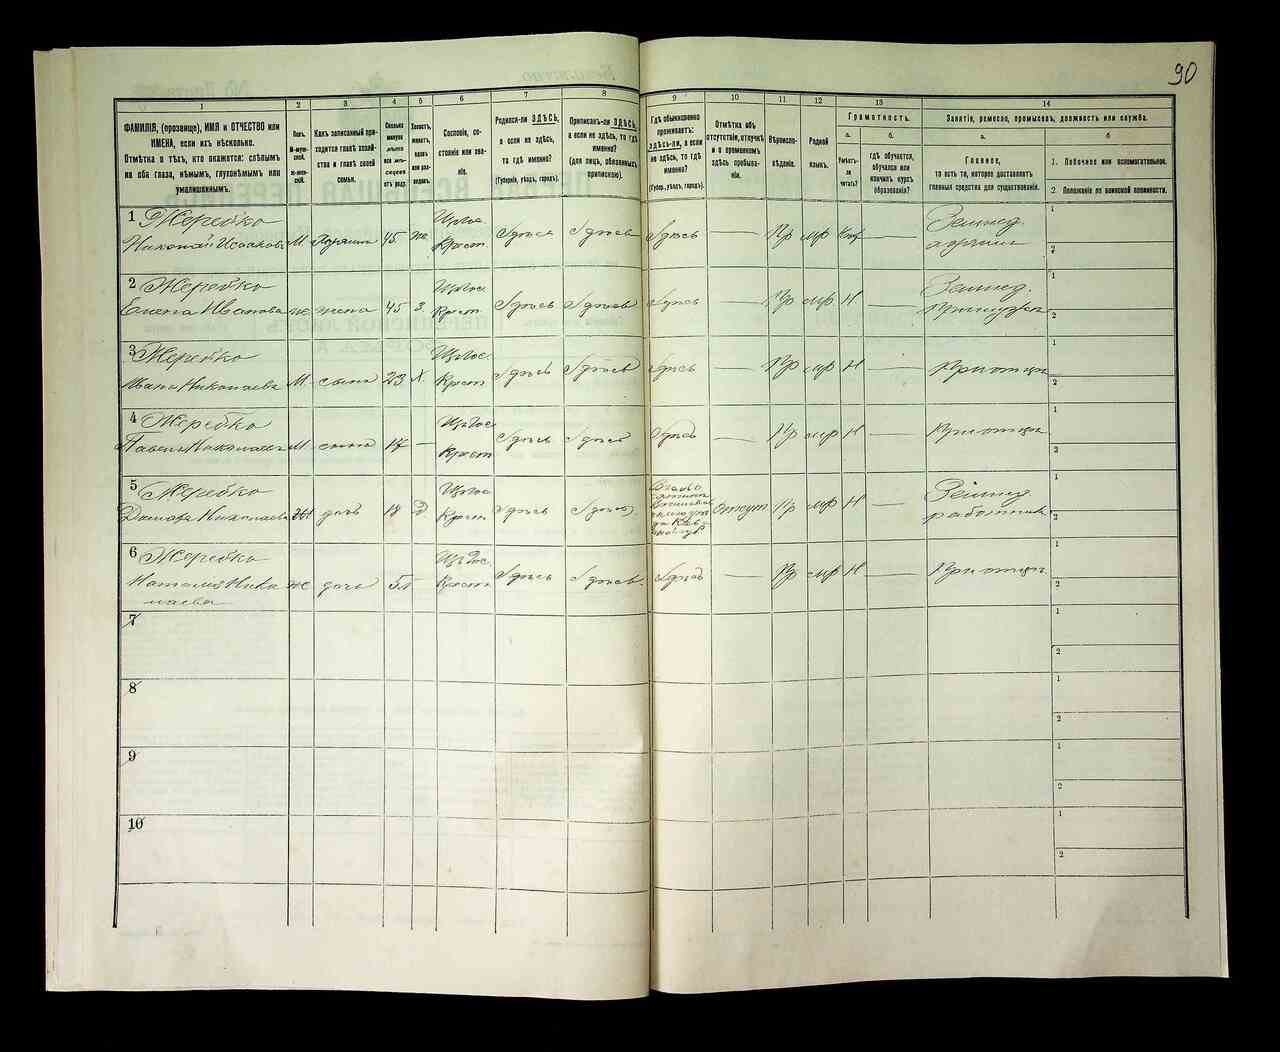 90
1
2
3
4
5
6
7
8
9
10
11
12
13
14
ФАМИЛІЯ, (прозвище), ИМЯ и ОТЧЕСТВО или
ИМЕНА, если ихъ нѣсколько.
Отмѣтка о тѣхъ, кто окажется: слѣпымъ
на оба глаза, нѣмымъ, глухонѣмымъ или
умалишеннымъ.
Полъ.
М-муж-
ской.
Ж-жен-
скій.
Какъ записанный при-
ходится главѣ хозяй-
ства и главѣ своей
семьи.
Сколько
минуло
лѣтъ
или мѣ-
сяцевъ
отъ роду.
Холостъ,
женатъ,
вдовъ
или раз-
веденъ.
Сословіе, со-
стояніе или зва-
ніе.
Родился-ли ЗДѢСЬ,
а если не здѣсь,
то гдѣ именно?
(Губернія, уѣздъ, городъ).
Приписанъ-ли ЗДѢСЬ,
а если не здѣсь, то гдѣ
именно?
(для лицъ, обязанныхъ
припискою).
Гдѣ обыкновенно
проживаетъ:
ЗДѢСЬ-ли, а если
не здѣсь, то гдѣ
именно?
(Губер., уѣздъ, городъ).
Отмѣтка объ
отсутствіи, отлучкѣ
и о временномъ
здѣсь пребыва-
ніи.
Вѣроиспо-
вѣданіе.
Родной
языкъ.
Грамотность.
а.
б.
Умѣетъ-
ли
читать?
гдѣ обучается,
обучался или
кончилъ курсъ
образованія?
Занятія, ремесло, промыселъ, должность или служба.
а.
б
Главное,
то есть то, которое доставляетъ
главныя средства для существованія.
1. Побочное или вспомогательное.
2. Положеніе по воинской повинности.
1 Жерейко
Николай Исааковъ М Хозяинъ 45 Крест. Здѣсь Здѣсь Здѣсь — Пр мр —
Землед.
хозяинъ
1
2
2 Жерейко
Елена Иванова же жена 45 З. Крест. Здѣсь Здѣсь Здѣсь — Пр мр Н —
Землед.
1
2
3 Жерейко
Иванъ Николаевъ М сынъ 23 Х. Крест Здѣсь Здѣсь Здѣсь — Пр мр Н —
При отцѣ
1
2
4 Жерейко
Павелъ Николаевъ М сынъ 17 — Крест Здѣсь Здѣсь Здѣсь — Пр мр Н —
При отцѣ
1
2
5 Жерейко
Николаева дочь 18 Д Крест. Здѣсь Здѣсь Отсут Пр мр Н —
Землед.
работник
1
2
6 Жерейко
Наталія Нико
лаева
же дочь 5 Крест. Здѣсь Здѣсь Здѣсь — Пр мр Н —
При отцѣ
1
2
7
1
2
8
1
2
9
1
2
10
1
2